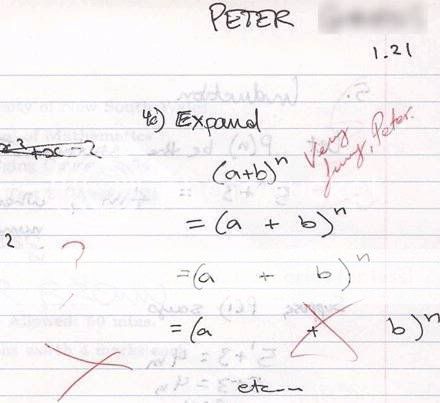 PETER
1.21
4c) Expand
(a+b)^n
Very
funny, Peter.
= (a + b)^n
2
?
= (a + b)^n
= (a + b)^n
etc...